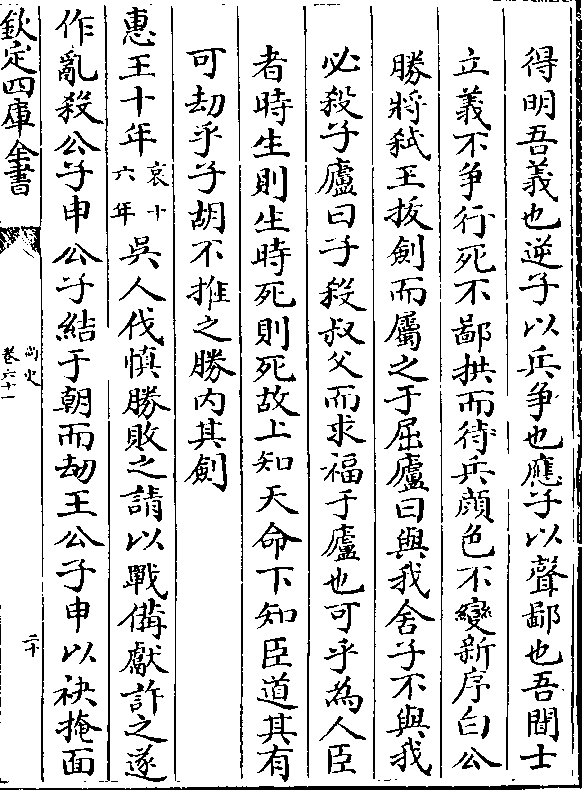 得明吾義也逆子以兵争也應子以聲鄙也吾聞士
立義不争行死不鄙拱而待兵顔色不變新序白公
勝將弑王拔劍而屬之于屈廬曰與我舍子不與我
必殺子廬曰子殺叔父而求福于廬也可乎為人臣
者時生則生時死則死故上知天命下知臣道其有
可刧乎子胡不推之勝内其劍
惠王十年哀十六年吳人伐慎勝敗之請以戰備獻許之遂
作亂殺公子申公子結于朝而刼王公子申以袂掩面
欽定四庫全書
尚史
卷六十一
二十